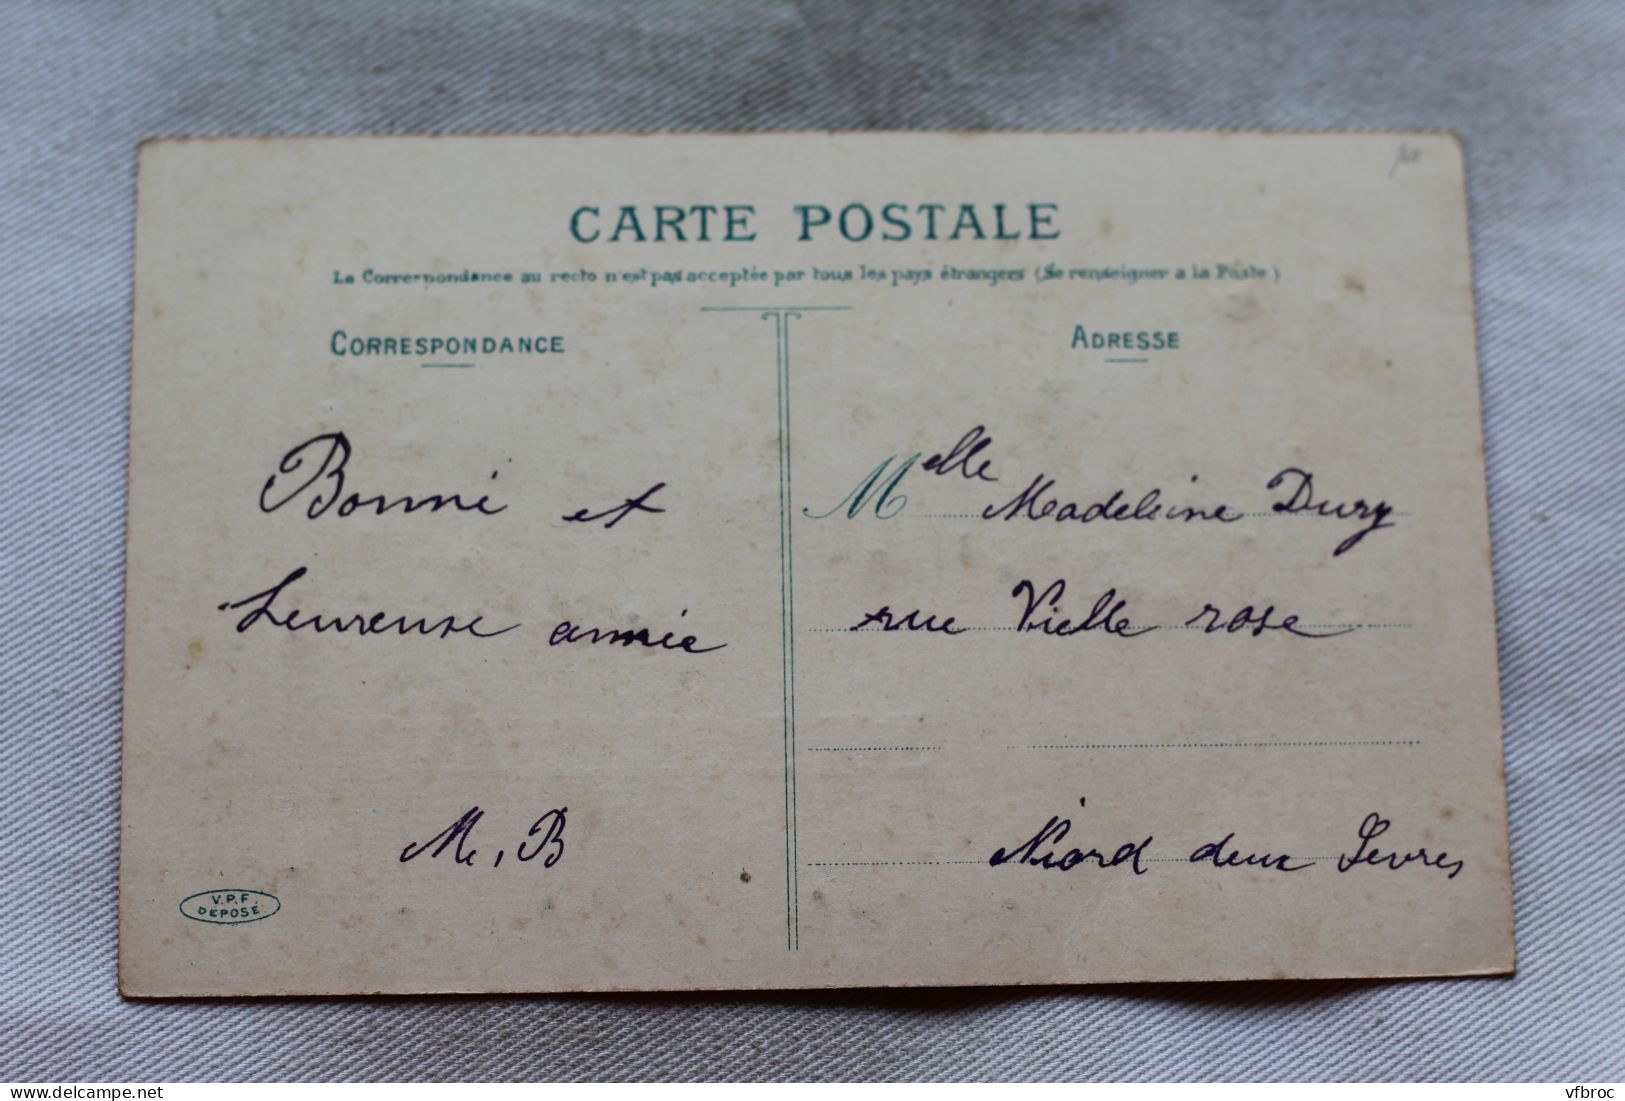 CARTE POSTALE
La Correspondance au recto n'est pas acceptée par tous les pays étrangers (Se renseigner a la Poste)
CORRESPONDANCE
Bonne et
heureuse année
M. B
V.P.F.
DÉPOSÉ
ADRESSE
Melle Madeleine Dury
rue Vielle rose
Niord deux Sevres
www.delcampe.net
vfbroc